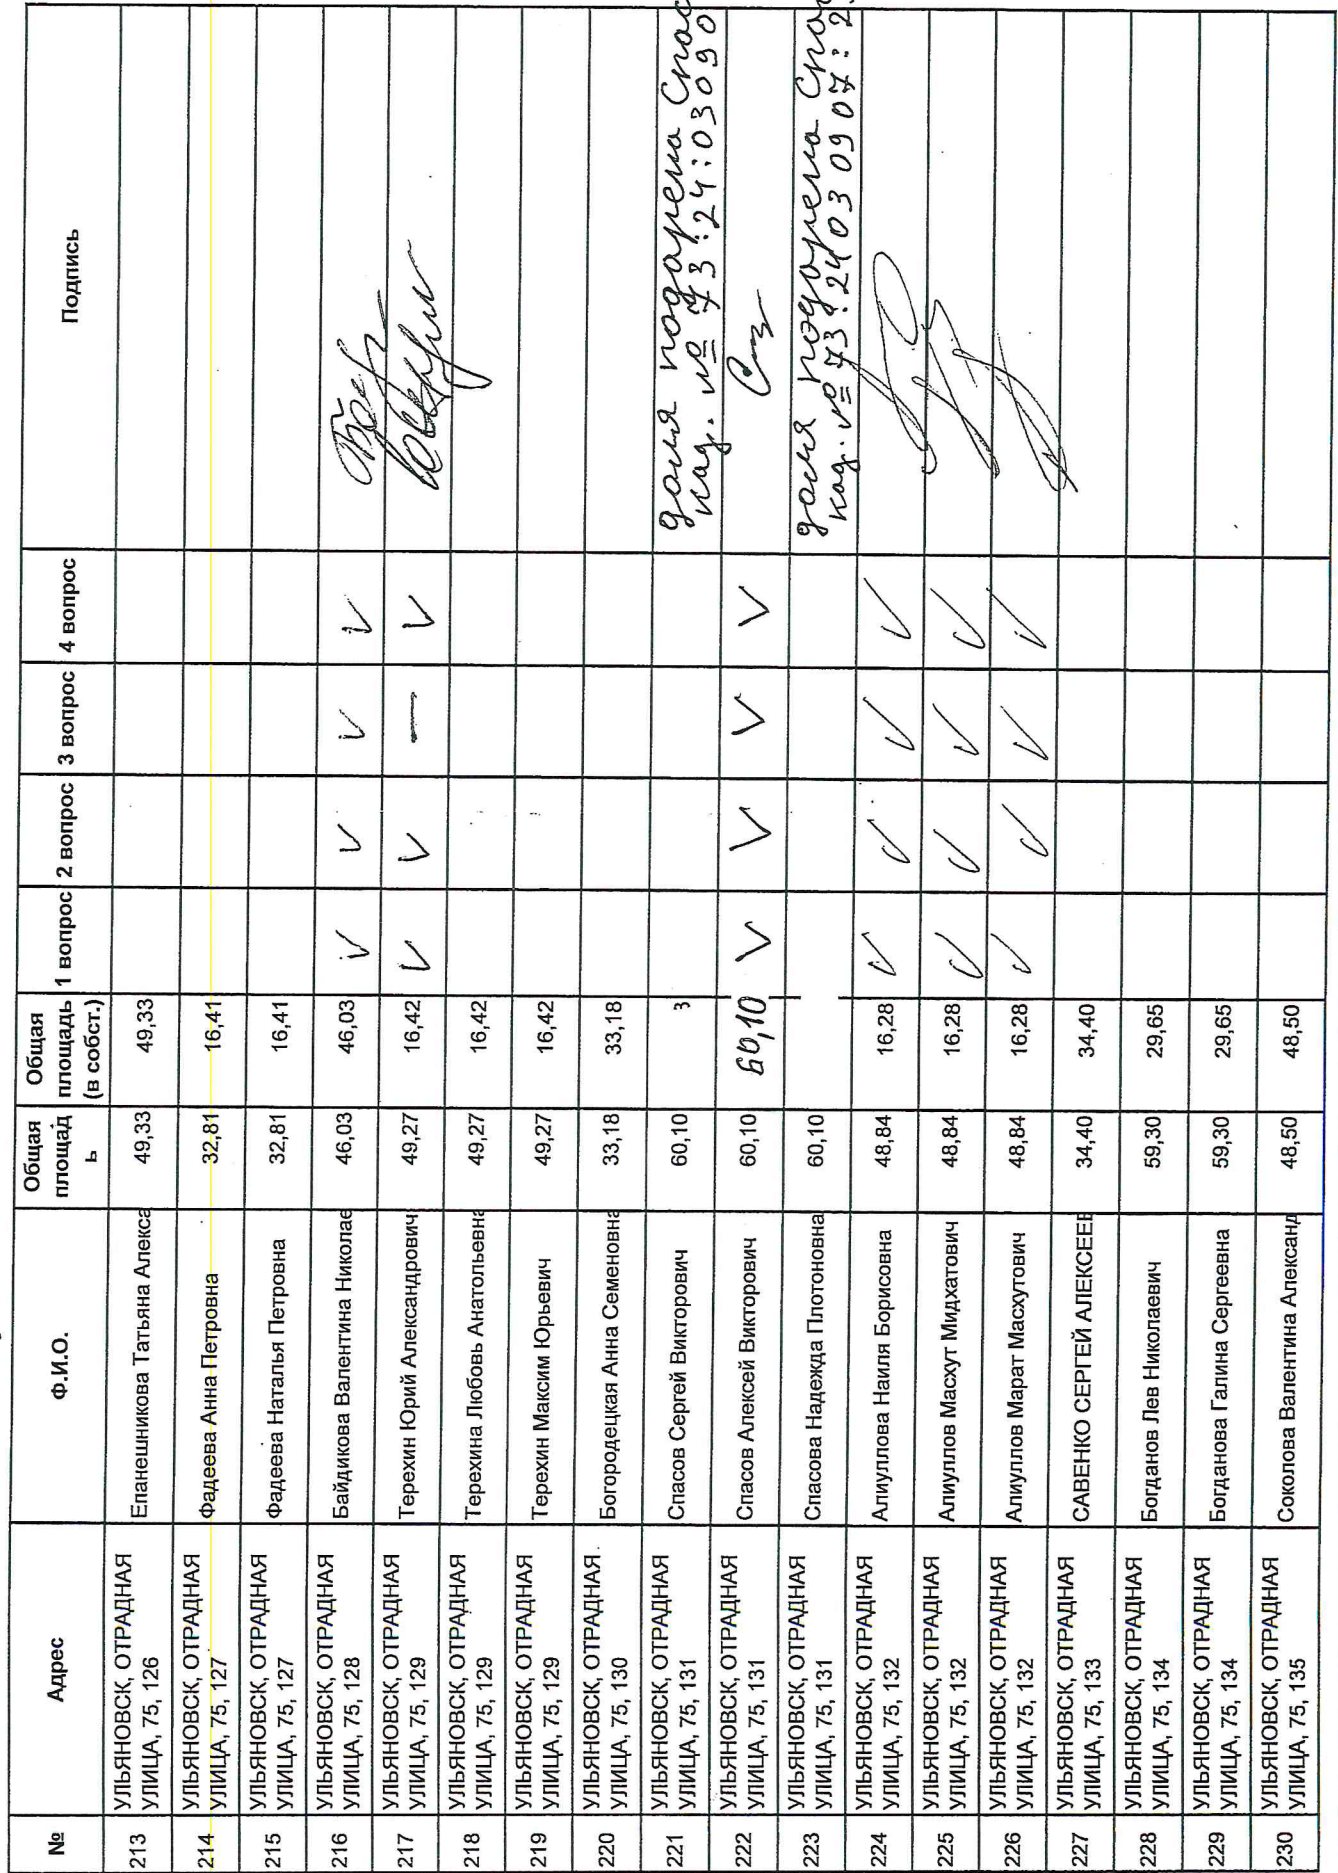 № Адрес Ф.И.О. Общая площадь Общая площадь (в собст.) 1 вопрос 2 вопрос 3 вопрос 4 вопрос Подпись
213 УЛЬЯНОВСК, ОТРАДНАЯ УЛИЦА, 75, 126 Епанешникова Татьяна Алекса 49,33 49,33
214 УЛЬЯНОВСК, ОТРАДНАЯ УЛИЦА, 75, 127 Фадеева Анна Петровна 32,81 16,41
215 УЛЬЯНОВСК, ОТРАДНАЯ УЛИЦА, 75, 127 Фадеева Наталья Петровна 32,81 16,41
216 УЛЬЯНОВСК, ОТРАДНАЯ УЛИЦА, 75, 128 Байдикова Валентина Николае 46,03 46,03 V V V V
217 УЛЬЯНОВСК, ОТРАДНАЯ УЛИЦА, 75, 129 Терехин Юрий Александрович 49,27 16,42 V V — V
218 УЛЬЯНОВСК, ОТРАДНАЯ УЛИЦА, 75, 129 Терехина Любовь Анатольевна 49,27 16,42
219 УЛЬЯНОВСК, ОТРАДНАЯ УЛИЦА, 75, 129 Терехин Максим Юрьевич 49,27 16,42
220 УЛЬЯНОВСК, ОТРАДНАЯ УЛИЦА, 75, 130 Богородецкая Анна Семеновна 33,18 33,18
221 УЛЬЯНОВСК, ОТРАДНАЯ УЛИЦА, 75, 131 Спасов Сергей Викторович 60,10 3 доля подарена Спас
кад. № 73:24:03090
222 УЛЬЯНОВСК, ОТРАДНАЯ УЛИЦА, 75, 131 Спасов Алексей Викторович 60,10 60,10 V V V V
223 УЛЬЯНОВСК, ОТРАДНАЯ УЛИЦА, 75, 131 Спасова Надежда Плотоновна 60,10 доля подарена Спас
кад. № 73:24030907:2
224 УЛЬЯНОВСК, ОТРАДНАЯ УЛИЦА, 75, 132 Алиуллова Наиля Борисовна 48,84 16,28 V V V V
225 УЛЬЯНОВСК, ОТРАДНАЯ УЛИЦА, 75, 132 Алиуллов Масхут Мидхатович 48,84 16,28 V V V V
226 УЛЬЯНОВСК, ОТРАДНАЯ УЛИЦА, 75, 132 Алиуллов Марат Масхутович 48,84 16,28 V V V V
227 УЛЬЯНОВСК, ОТРАДНАЯ УЛИЦА, 75, 133 САВЕНКО СЕРГЕЙ АЛЕКСЕЕВ 34,40 34,40
228 УЛЬЯНОВСК, ОТРАДНАЯ УЛИЦА, 75, 134 Богданов Лев Николаевич 59,30 29,65
229 УЛЬЯНОВСК, ОТРАДНАЯ УЛИЦА, 75, 134 Богданова Галина Сергеевна 59,30 29,65
230 УЛЬЯНОВСК, ОТРАДНАЯ УЛИЦА, 75, 135 Соколова Валентина Александ 48,50 48,50